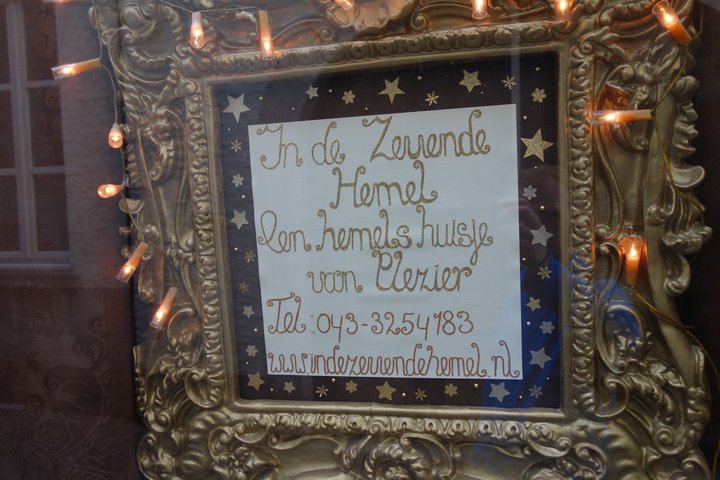 In de Zevende
Hemel
Een hemels huisje
van Plezier
Tel : 043-3254183
www.indezevendehemel.nl